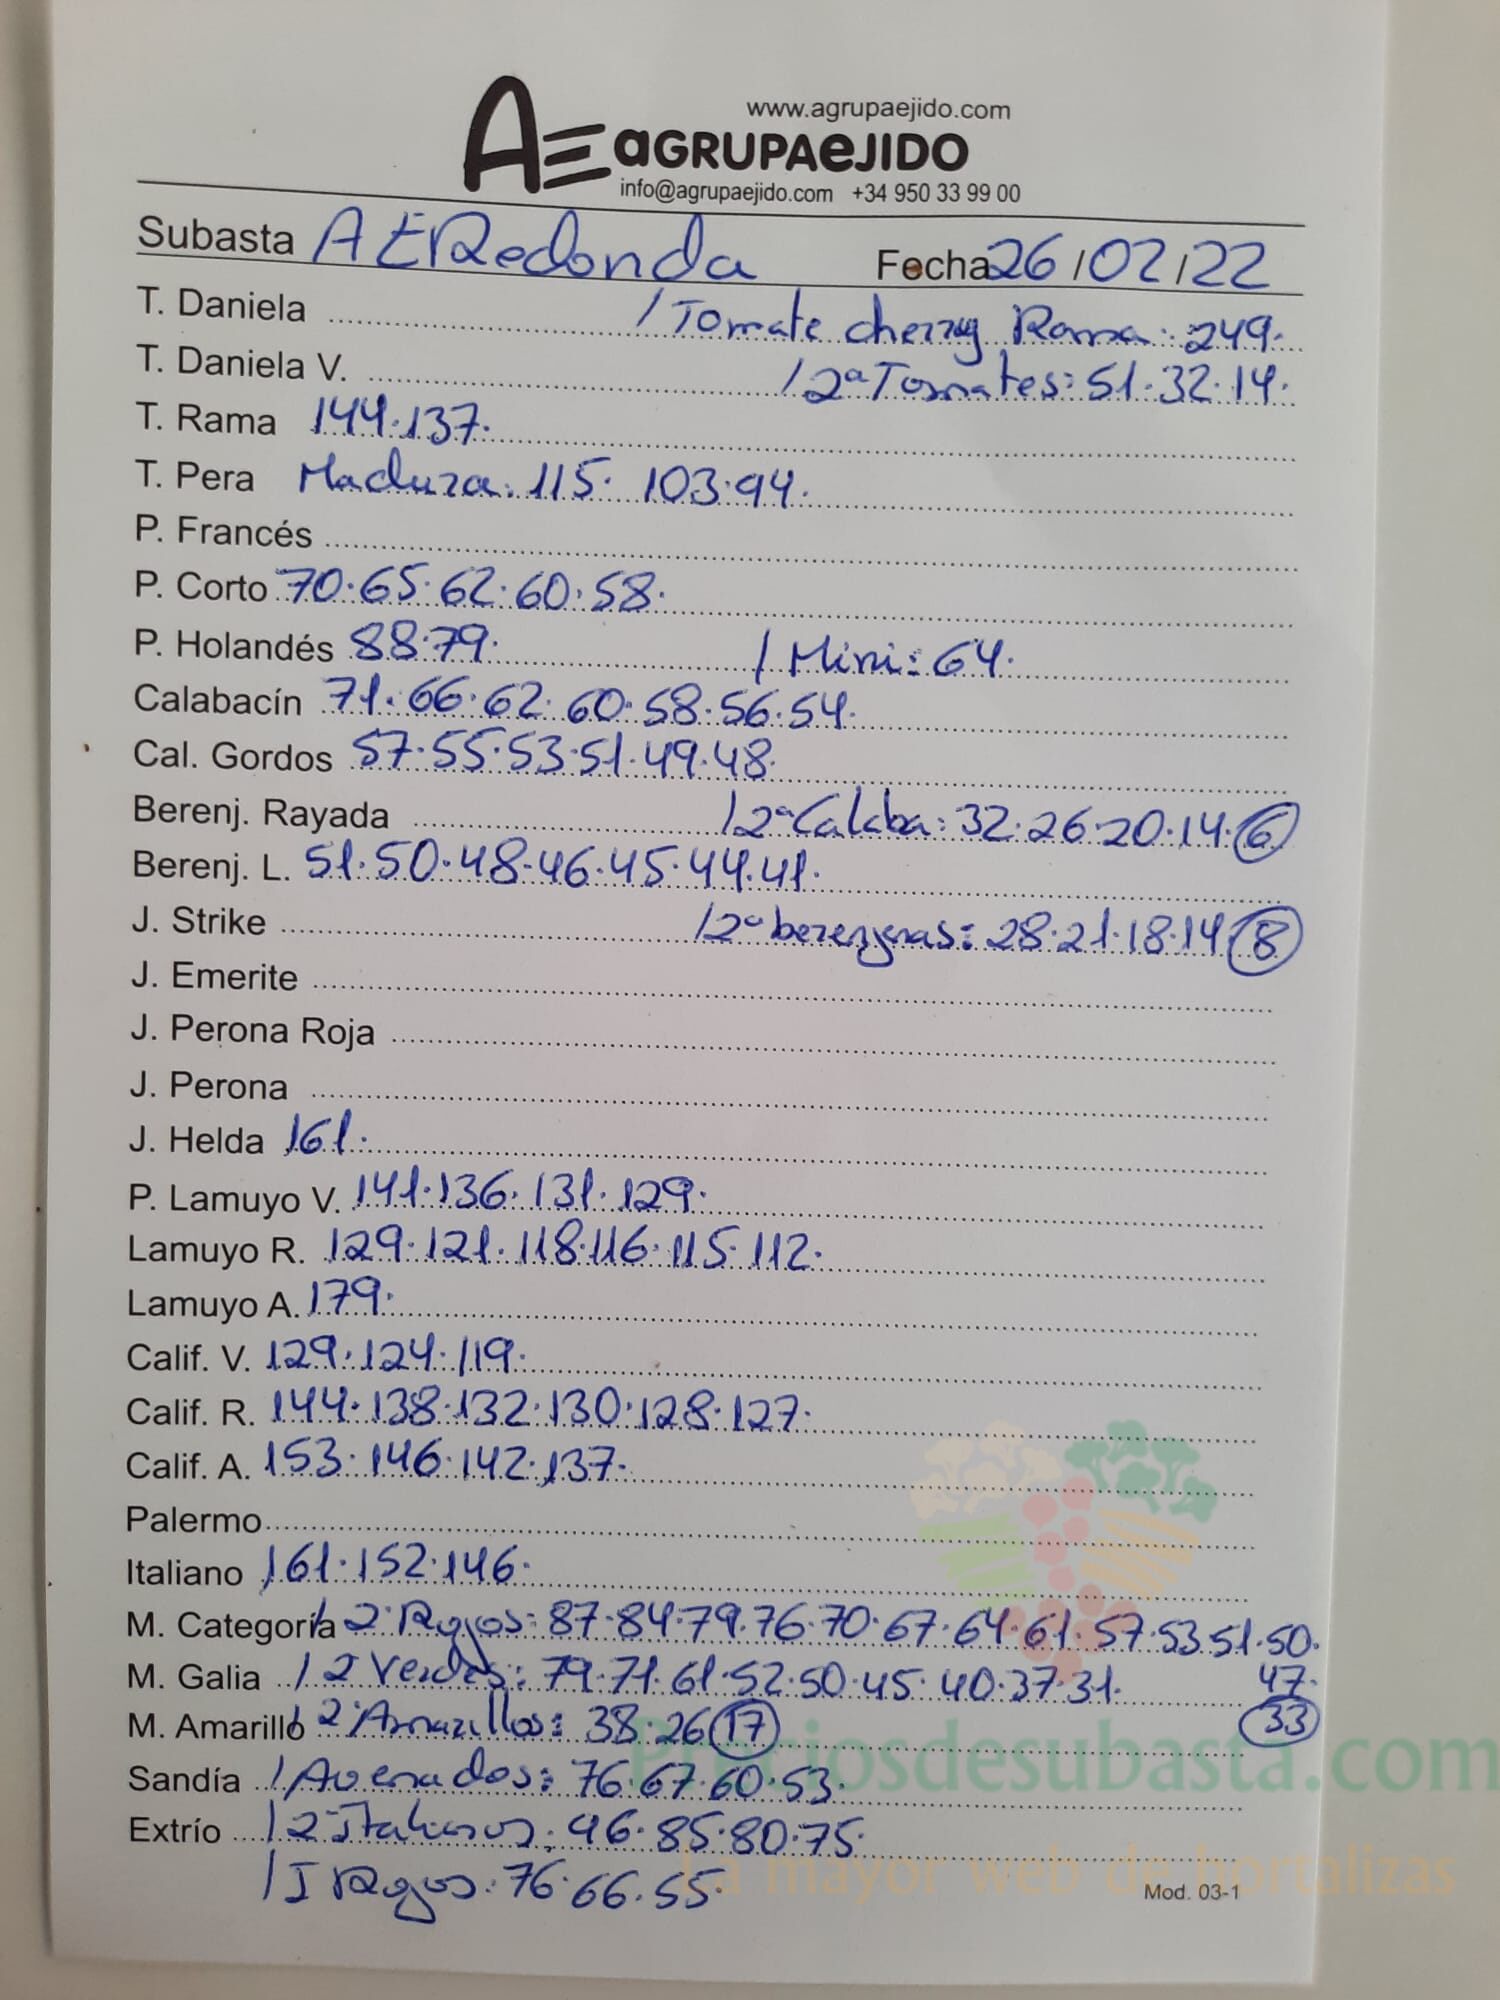 www.agrupaejido.com
AE aGRUPAeJIDO
info@agrupaejido.com +34 950 33 99 00
Subasta AERedonda Fecha 26/02/22
T. Daniela / Tomate cherry Rama: 249.
T. Daniela V. / 2ª Tomates: 51.32.14.
T. Rama 144.137.
T. Pera Madura: 115. 103.94.
P. Francés
P. Corto 70.65.62.60.58.
P. Holandés 88.79. / Mini: 64.
Calabacín 71.66.62.60.58.56.54.
Cal. Gordos 57.55.53.51.49.48.
Berenj. Rayada / 2ª Calaba: 32.26.20.14.6
Berenj. L. 51.50.48.46.45.44.41.
J. Strike / 2ª berenjenas: 28.21.18.14 8
J. Emerite
J. Perona Roja
J. Perona
J. Helda 161.
P. Lamuyo V. 141.136.131.129.
Lamuyo R. 129.121.118.116.115.112.
Lamuyo A. 179.
Calif. V. 129.124.119.
Calif. R. 144.138.132.130.128.127.
Calif. A. 153.146.142.137.
Palermo
Italiano 161.152.146.
M. Categoría / 2ª Rojos: 87.84.79.76.70.67.64.61.57.53.51.50.
47.
33
M. Galia / 2 Verdes: 79.71.61.52.50.45.40.37.31.
M. Amarillo / 2ª Amarillos: 38.26 17
Sandía / Asenados: 76.67.60.53.
Extrío / 2 Italianos: 96.85.80.75.
/ I Rojos: 76.66.55.
Mod. 03-1
Preciosdesubasta.com
La mayor web de hortalizas